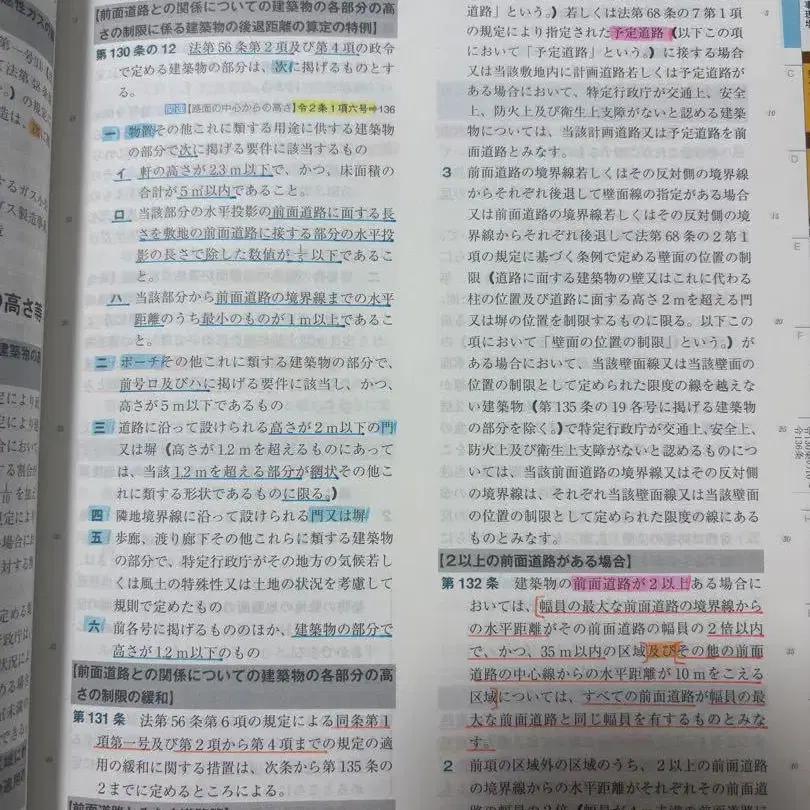 【前面道路との関係についての建築物の各部分の高
さの制限に係る建築物の後退距離の算定の特例】
第130条の12 法第56条第2項及び第4項の政令
で定める建築物の部分は、次に掲げるものとす
る。
関連【路面の中心からの高さ】令2条1項六号⇒136
一 物置その他これに類する用途に供する建築物
の部分で次に掲げる要件に該当するもの
イ 軒の高さが2.3m以下で、かつ、床面積の
合計が5㎡以内であること。
ロ 当該部分の水平投影の前面道路に面する長
さを敷地の前面道路に接する部分の水平投
影の長さで除した数値が1/5以下であるこ
と。
ハ 当該部分から前面道路の境界線までの水平
距離のうち最小のものが1m以上であるこ
と。
二 ポーチその他これに類する建築物の部分で、
前号ロ及びハに掲げる要件に該当し、かつ、
高さが5m以下であるもの
三 道路に沿って設けられる高さが2m以下の門
又は塀(高さが1.2mを超えるものにあって
は、当該1.2mを超える部分が網状その他こ
れに類する形状であるものに限る。)
四 隣地境界線に沿って設けられる門又は塀
五 歩廊、渡り廊下その他これらに類する建築物
の部分で、特定行政庁がその地方の気候若し
くは風土の特殊性又は土地の状況を考慮して
規則で定めたもの
六 前各号に掲げるもののほか、建築物の部分で
高さが1.2m以下のもの
【前面道路との関係についての建築物の各部分の高
さの制限の緩和】
第131条 法第56条第6項の規定による同条第1
項第一号及び第2項から第4項までの規定の適
用の緩和に関する措置は、次条から第135条の
2までに定めるところによる。
道路」という。)若しくは法第68条の7第1項
の規定により指定された予定道路(以下この項
において「予定道路」という。)に接する場合
又は当該敷地内に計画道路若しくは予定道路が
ある場合において、特定行政庁が交通上、安全
上、防火上及び衛生上支障がないと認める建築
物については、当該計画道路又は予定道路を前
面道路とみなす。
3 前面道路の境界線若しくはその反対側の境界線
からそれぞれ後退して壁面線の指定がある場合
又は前面道路の境界線若しくはその反対側の境
界線からそれぞれ後退して法第68条の2第1
項の規定に基づく条例で定める壁面の位置の制
限(道路に面する建築物の壁又はこれに代わる
柱の位置及び道路に面する高さ2mを超える門
又は塀の位置を制限するものに限る。以下この
項において「壁面の位置の制限」という。)が
ある場合において、当該壁面線又は当該壁面の
位置の制限として定められた限度の線を越えな
い建築物(第135条の19各号に掲げる建築物
の部分を除く。)で特定行政庁が交通上、安全上、
防火上及び衛生上支障がないと認めるものにつ
いては、当該前面道路の境界線又はその反対側
の境界線は、それぞれ当該壁面線又は当該壁面
の位置の制限として定められた限度の線にある
ものとみなす。
【2以上の前面道路がある場合】
第132条 建築物の前面道路が2以上ある場合に
おいては、幅員の最大な前面道路の境界線から
の水平距離がその前面道路の幅員の2倍以内
で、かつ、35m以内の区域及びその他の前面
道路の中心線からの水平距離が10mをこえる
区域については、すべての前面道路が幅員の最
大な前面道路と同じ幅員を有するものとみな
す。
2 前項の区域外の区域のうち、2以上の前面道路
の境界線からの水平距離がそれぞれその前面道